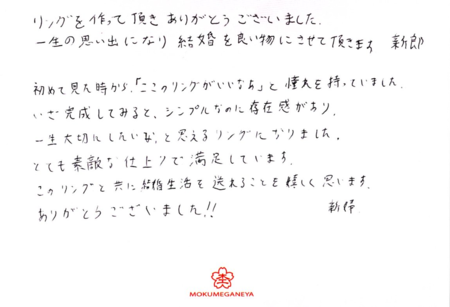 リングを作って頂きありがとうございました。
一生の思い出になり 結婚を良い物にさせて頂きます 新郎
初めて見た時から、「ここのリングがいいなぁ」と憧れを持っていました。
いざ完成してみると、シンプルなのに存在感があり、
一生大切にしたいな、と思えるリングになりました。
とても素敵な仕上りで満足しています。
このリングと共に結婚生活を送れることを嬉しく思います。
ありがとうございました!! 新婦
MOKUMEGANEYA